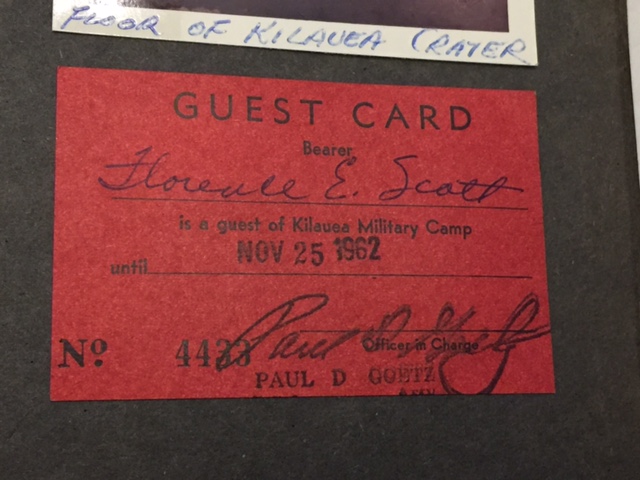 FLOOR OF KILAUEA CRATER
GUEST CARD
Bearer
Florence E. Scott
is a guest of Kilauea Military Camp
NOV 25 1962
until
Paul D Goetz
Officer in Charge
Nº 4433
PAUL D GOETZ